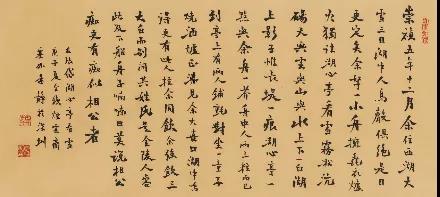 崇禎五年十二月余住西湖大
雪三日湖中人鳥聲俱絕是日
更定矣余拏一小舟擁毳衣爐
火獨往湖心亭看雪霧凇沆
碭天與雲與山與水上下一白湖
上影子惟長堤一痕湖心亭一
點與余舟一芥舟中人兩三粒而已
到亭上有兩人鋪氈對坐一童子
燒酒爐正沸見余大喜曰湖中焉
得更有此人拉余同飲余強飲三
大白而別問其姓氏是金陵人客
此及下船舟子喃喃曰莫說相公
癡更有癡似相公者
張岱湖心亭看雪
庚子夏
深圳